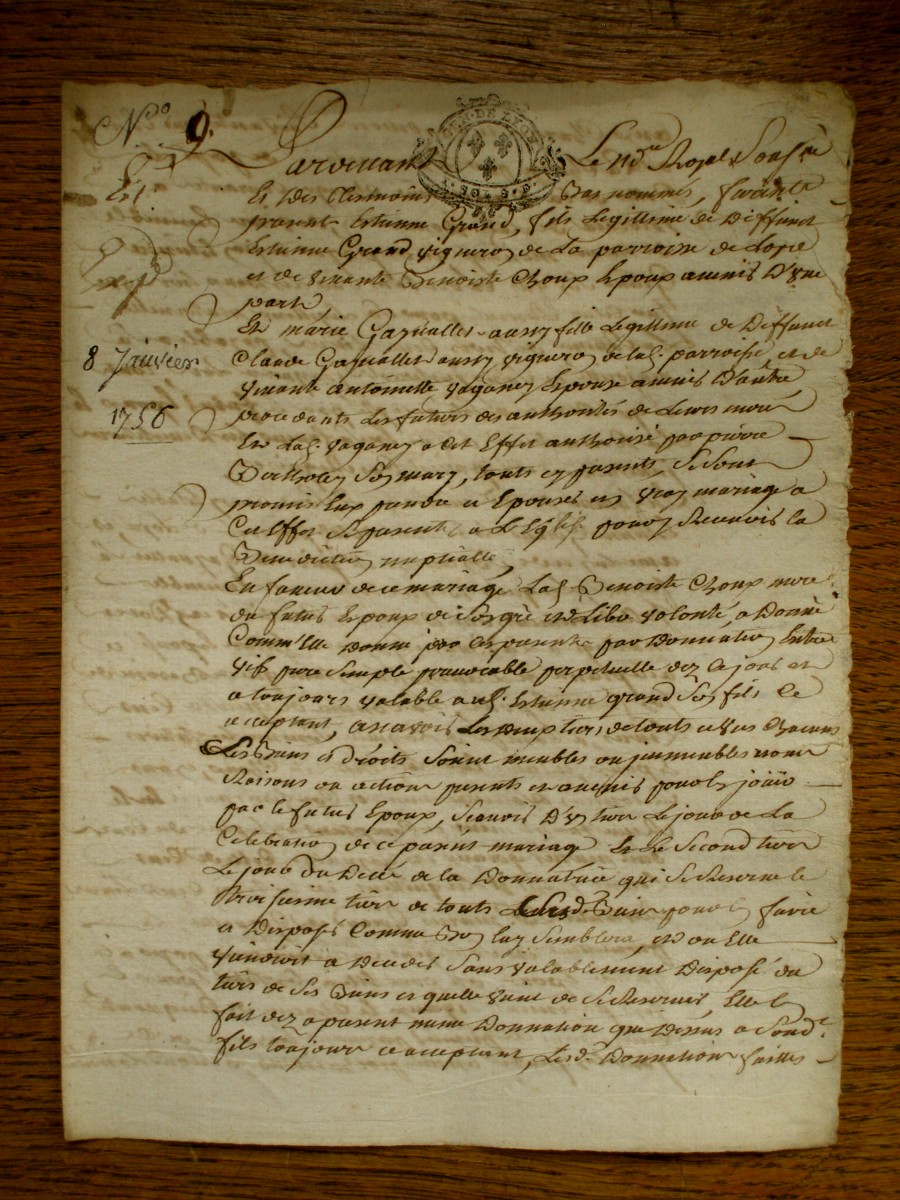 N.ro 9.
GEN. DE LYON
Pardevant Le no.re Royal Sous.né
Et Des Tesmoins Bas nommés, furent
present Estienne Grand, fils Legittime de Deffunct
Estienne Grand vigneron de La parroisse de
et de vivante Benoiste Choux Epoux amenis D'Vne
part
Et marie Gaynallet aussy fille Legittime de Deffunct
8 Janvier
Claude Gaynallet aussy vigneron de lad. parroisse, et de
vivante Antoinette vaganey Epouse amenis D'autre
1756
procedants Les futurs des authorités de Leurs mere
Et Lad. vaganey a Cet Effet authorisé par pierre
Bertholey Son mary, touts cy presents, Se Sont
promis Eux prendre et Epouser en vray mariage a
Cet Effet Se presenter a L'Eglise pour y Recevoir la
Benediction nuptialle
En faveur de ce mariage Lad. Benoiste Choux mere
du futur Epoux de Son gré et Libre volonté, a Donné
Comm'Elle Donne par Ces presentes par Donnation Entre
vifs pure Simple jrrevocable perpetuelle dez Ce jour et
a toujours valable aud. Estienne grand Son fils Ce
acceptant, ascavoir Les deux tiers de touts et Vns Chacuns
Les Biens et droits Soient meubles ou jmmeubles noms
Raisons ou actions presents et avenirs pour En joüir
par le futur Epoux, Scavoir D'Vn tiers Le jour de La
Celebration de ce present mariage Et Le Second tiers
Le jour du Decés de la Donnatrice qui Se Reserve le
Troisieme tiers de touts Lesd. Biens pour En faire
et Disposer Comme Bon luy Semblera, et ou Elle
viendroit a Deceder Sans valablement Disposer du
tiers de Ses Biens et quelle vient de Se Reserver Elle En
fait dez a present meme Donnation que Dessus a Sond.
fils toujours ce acceptant, Lesd. Donnations faittes